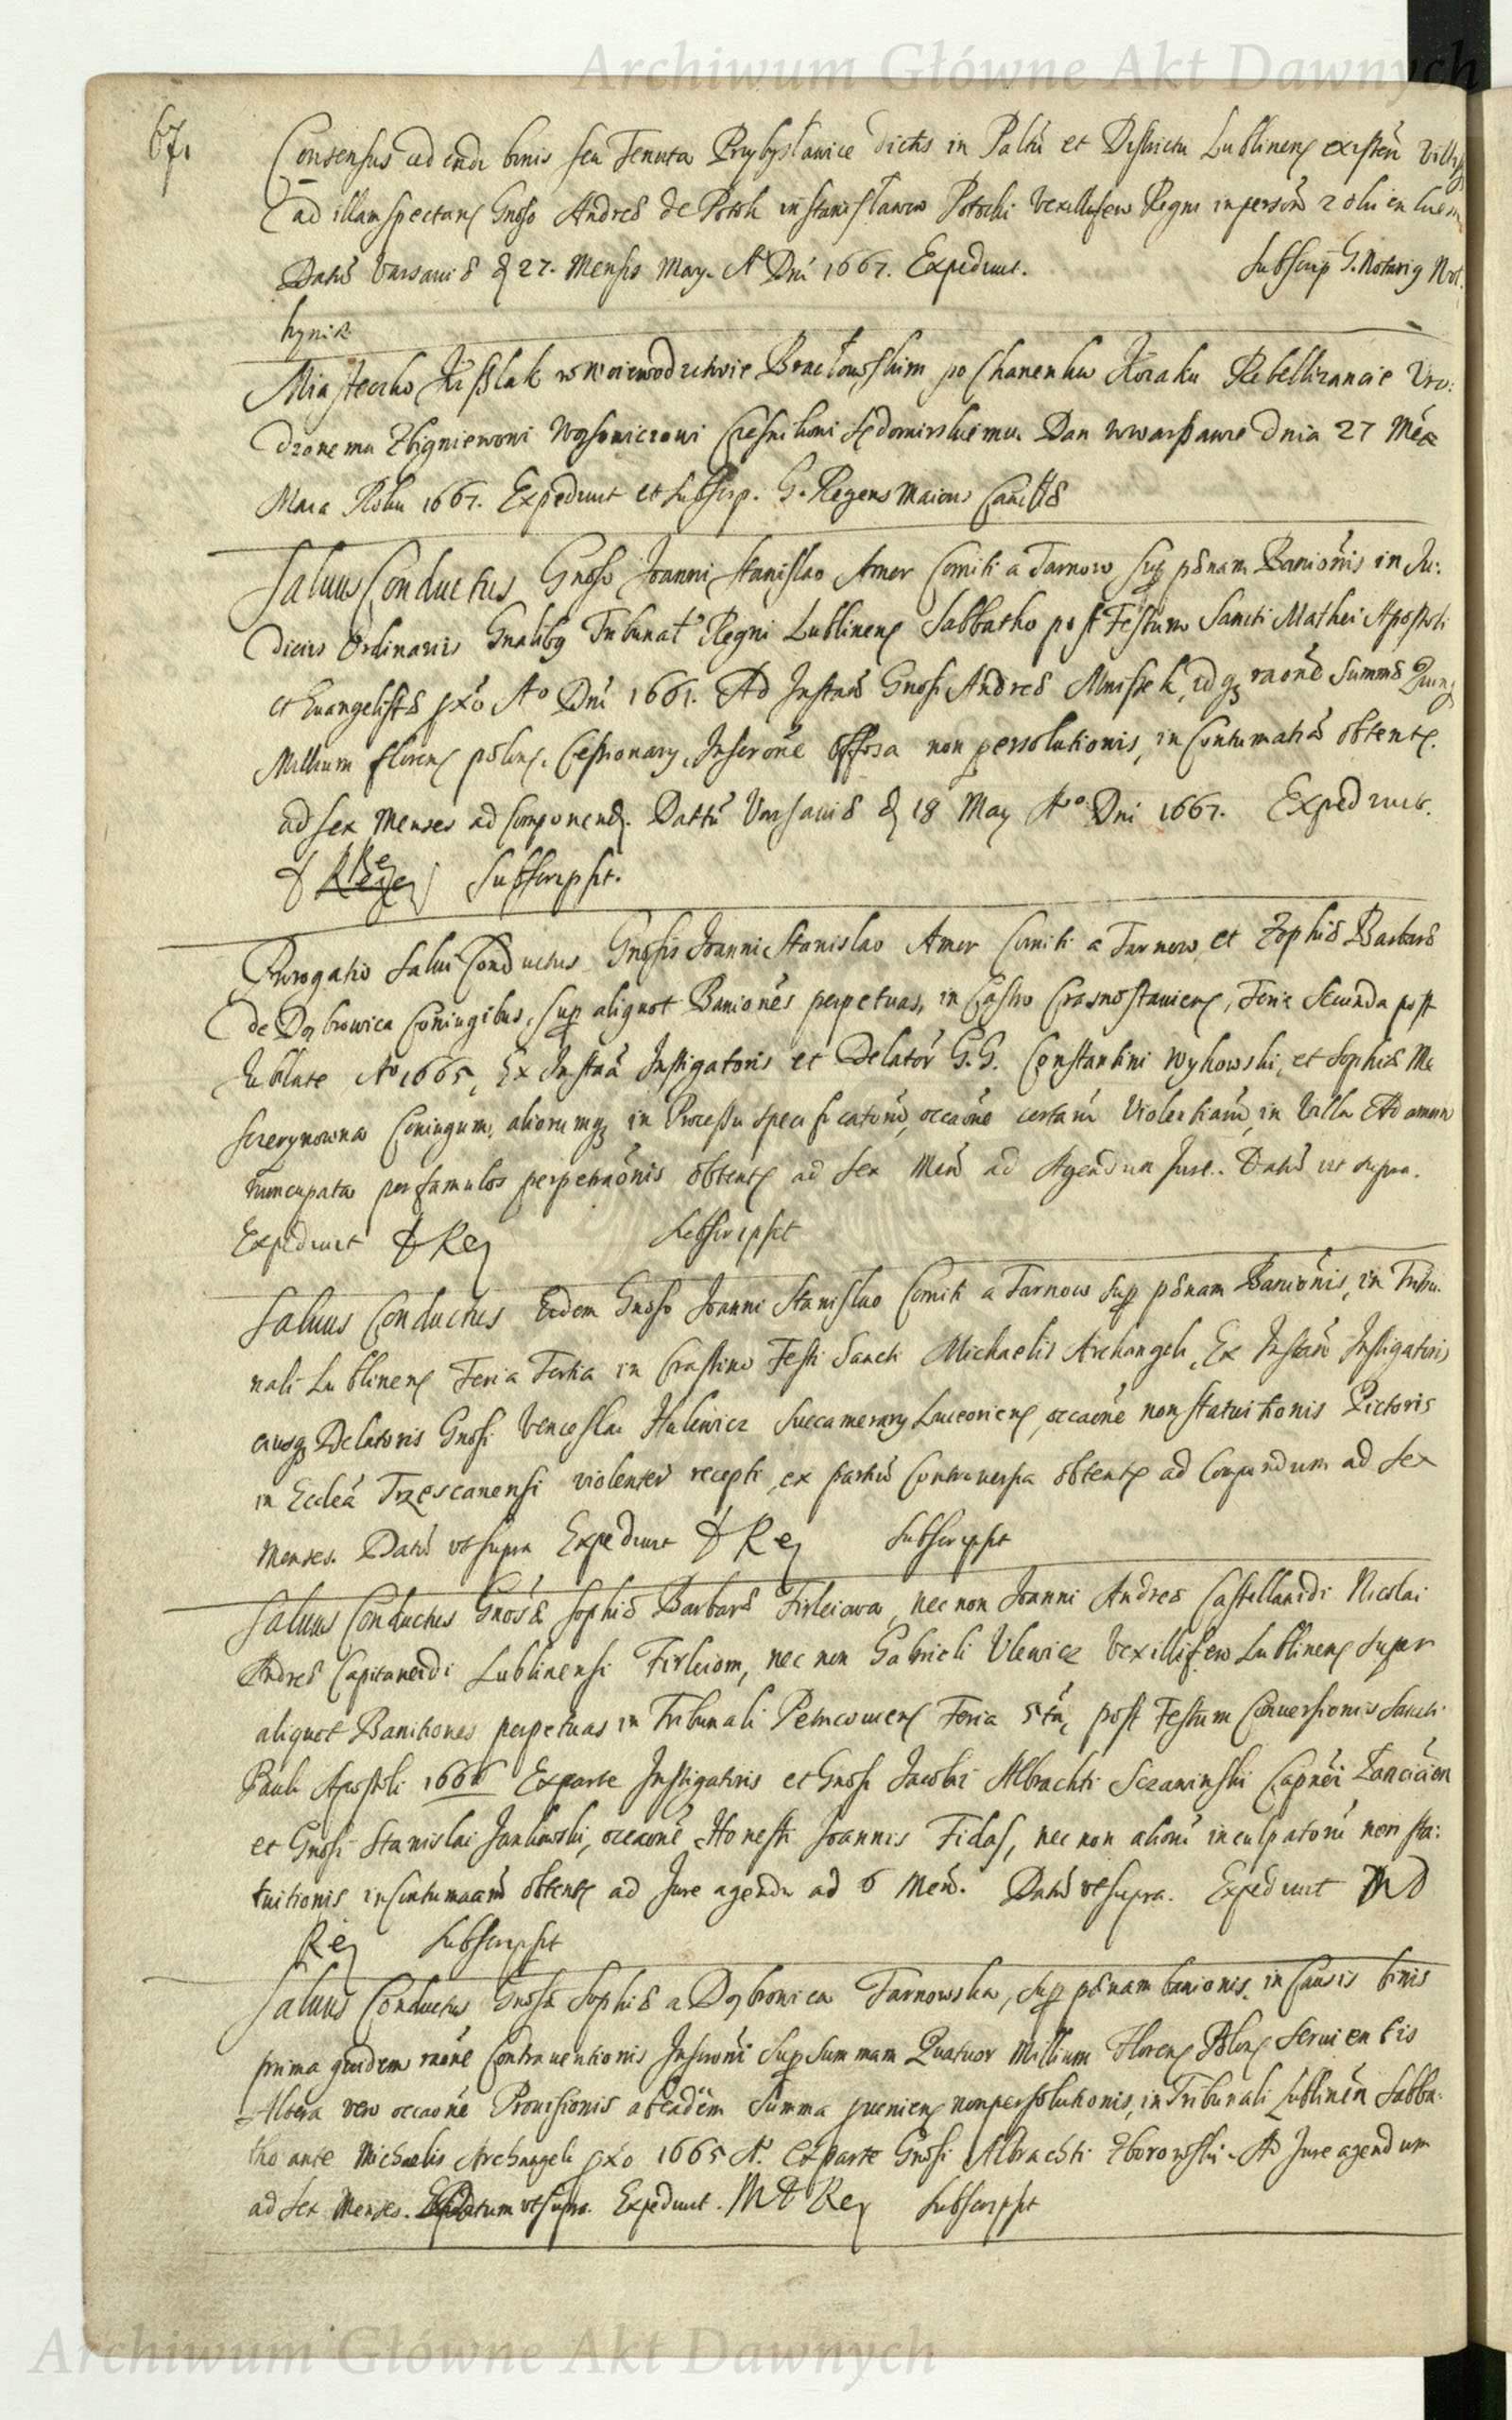 Archiwum Główne Akt Dawnych
67.
Consensus cedendi bonis seu Tenuta Przybysławice dictis in Paltu et Districtu Lublinen existen Villis
ad illam spectan Gnoso Andreæ de Potok in Stanisławow Potocki Vexillifero Regni in personã
Datũ Varsaviæ d 27. Mensis May. Aº Dni 1667. Expediuit. Subscrip G. Notariq
Miasteczko Kisslak w Woiewodztwie Bracłowskim po Chanenku Kozaku Rebellizancie Vro:
dzonemu Zbigniewowi Cześnikowi Sędomirskiemu. Dan w Warszawie Dnia 27 Mca
Maia Roku 1667. Expediuit et Subscrip. G. Regens Maioris Cancellæ
Saluus Conductus Gnoso Joanni Stanislao Amor Comiti a Tarnow sup pænam Banionis in Ju:
diciis Ordinariis Gnalibq Tribunat Regni Lublinen Sabbatho post Festum Sancti Mathei Apostoli
et Euangelistæ pxo Aº Dni 1661. Ad Instan Gnosi Andreæ Mniszek, idqz raõne Summæ Quinqz
Millium floren polon. Cessionary, Inscrõne non persolutionis, in Contumatiã obtent.
ad sex Menses ad componend. Dattũ Varsaviæ d 18 May Aº Dni 1667. Expediuit.
Subscripsit.
Prorogatio Salui Conductus Gnosis Joanni Stanislao Amor Comiti a Tarnow, et Zophiæ Barbaræ
de Dąbrowica Coniugibus, sup aliquot Baniones perpetuas, in Castro Crasnostauien, Feria Secunda post
Jubilate Aº 1665, Ex Instaã Instigatoris et Delator G.G. Constantini Wyhowski, et Sophiæ Me
szczerynowna Coniugum, aliorumqz in Processu specificatorũ, occaõne certarũ Violentiarũ, in Villa
nuncupata per famulos perpetraõnis obtent ad sex Men ad Agendum Jure. Datũ ut supra.
Expediuit Subscripsit
Saluus Conductus Eidem Gnoso Joanni Stanislao Comiti a Tarnow sup pænam Banionis, in Tribu:
nali Lublinen Feria Tertia in Crastino Festi Sancti Michaelis Archangeli, Ex Instan Instigatoris
eiusqz Delatoris Gnosi Venceslai Hulewicz Succamerary Luceorien, occaone non statuitionis Pictoris
in Ecclea Trzescanensi violenter recepti, ex partiũ Controuersia obtent ad Componendum ad sex
Menses. Datũ ut supra Expediuit Subscripsit
Saluus Conductus Gnosæ Sophiæ Barbaræ Firleiowa, nec non Joanni Andreæ Castellanidi Nicolai
Andreæ Capitaneidi Lublinensi Firleiom, nec non Gabrieli Ulewicz Vexillifero Lublinen super
aliquot Banitiones perpetuas in Tribunali Petricouien Feria 5ta, post Festum Conuersionis Sancti
Pauli Apostoli 1666 Exparte Instigatoris et Gnosi Jacobi Albrachti Sczawinski Capnei Lancicien
et Gnosi Stanislai Jankowski, occaone Honesti Joannis Fidas, nec non aliorũ inculpatorũ non sta:
tuitionis in contumaciã obtent ad Jure agendũ ad 6 Men. Datũ ut supra. Expediuit MD
Rey Subscripsit
Saluus Conductus Gnosæ Sophiæ a Dąbrowica Tarnowska, sup pænam banionis, in Causis binis
prima quidem raõne Contrauentionis Inscrõni sup Summam Quatuor Millium Floren Polon seruientis
Altera vero occaõne Prouisionis ab eadem Summa prouenien non persolutionis, in Tribunali Lublinen Sabba:
tho ante Michaelis Archangeli pxo 1665 A. Ex parte Gnosi Albrachti Zborowski. Ad Jure agendum
ad sex Menses. Datum ut supra. Expediuit. MD Rey Subscripsit
Archiwum Główne Akt Dawnych